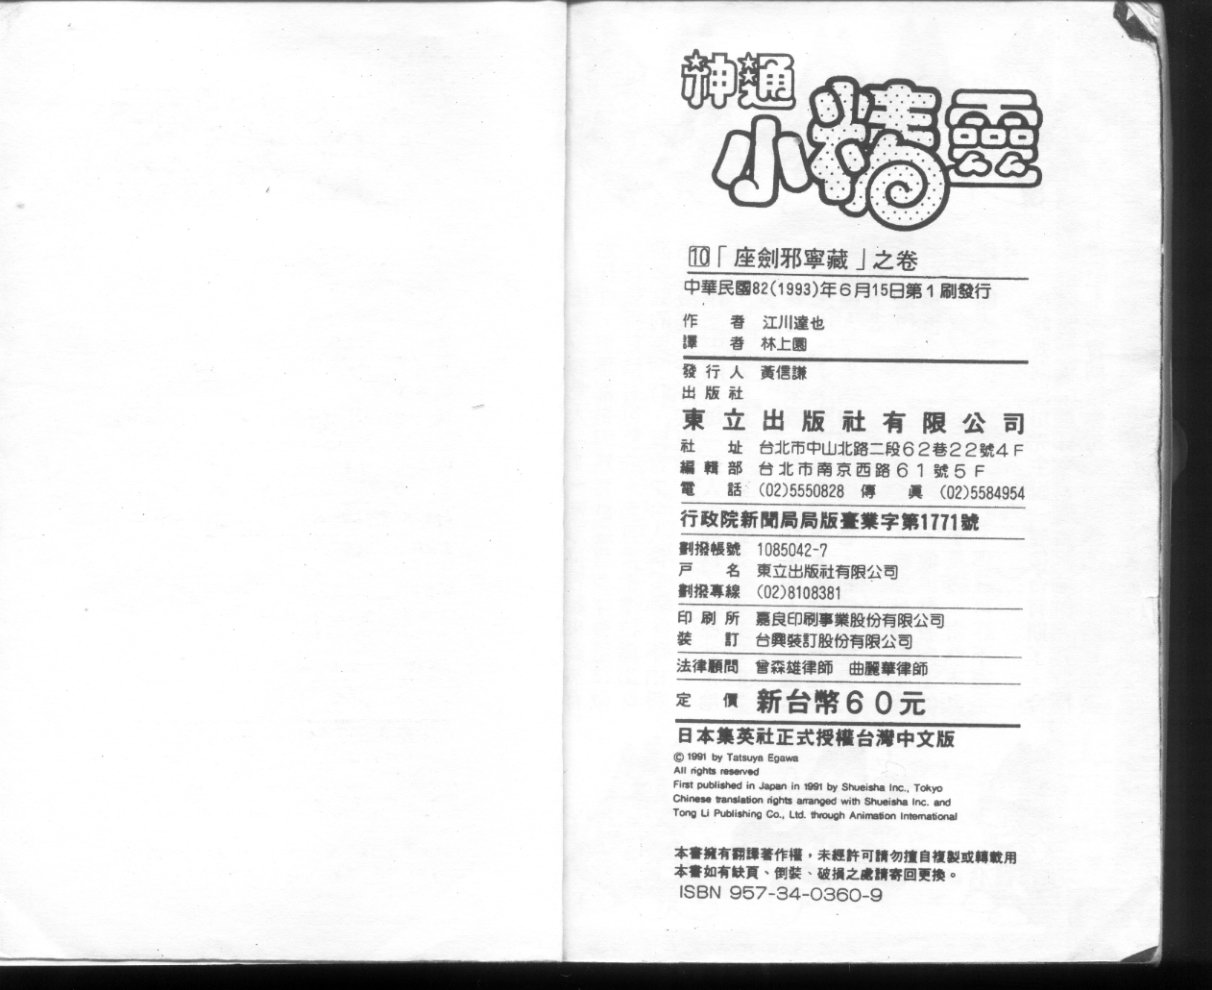 神通
小精靈
10「座劍邪寧藏」之卷
中華民國82(1993)年6月15日第1刷發行
作者 江川達也
譯者 林上園
發行人 黃信謙
出版社
東立出版社有限公司
社址 台北市中山北路二段62巷22號4F
編輯部 台北市南京西路61號5F
電話 (02)5550828 傳眞 (02)5584954
行政院新聞局局版臺業字第1771號
劃撥帳號 1085042-7
戶名 東立出版社有限公司
劃撥專線 (02)8108381
印刷所 嘉良印刷事業股份有限公司
裝訂 台興裝訂股份有限公司
法律顧問 曾森雄律師 曲麗華律師
定價 新台幣60元
日本集英社正式授權台灣中文版
© 1991 by Tatsuya Egawa
All rights reserved
First published in Japan in 1991 by Shueisha Inc., Tokyo
Chinese translation rights arranged with Shueisha Inc. and
Tong Li Publishing Co., Ltd. through Animation International
本書擁有翻譯著作權，未經許可請勿擅自複製或轉載用
本書如有缺頁、倒裝、破損之處請寄回更換。
ISBN 957-34-0360-9